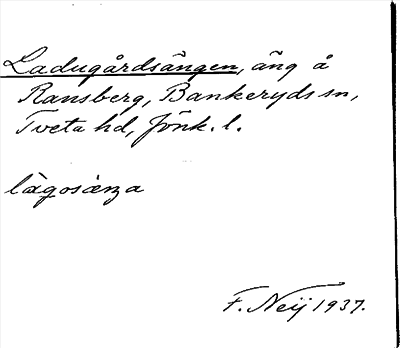 Ladugårdsängen, äng å
Ransberg, Bankeryds sn,
Tveta hd, Jönk. l.
F. Neij 1937.